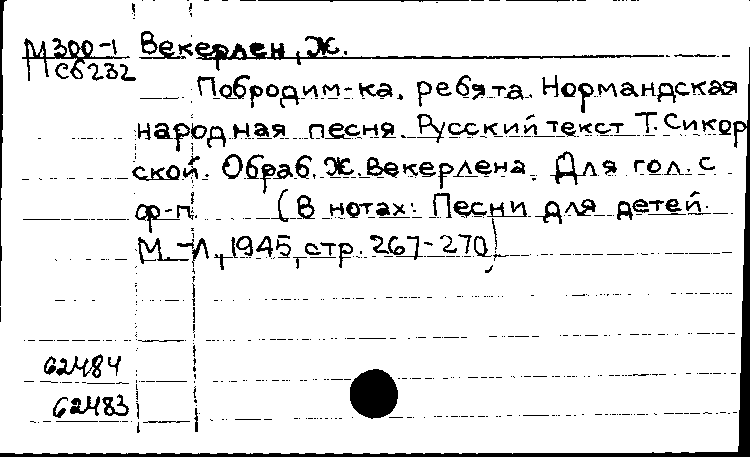 М300-1 Векерлен, Ж.
Мсб232
Побродим-ка, ребята. Нормандская
народная песня. Русский текст Т. Сикор
ской. Обраб. Ж. Векерлена. Для гол. с
ф-п (В нотах: Песни для детей.
М.-Л., 1945, стр. 267-270)
62484
62483